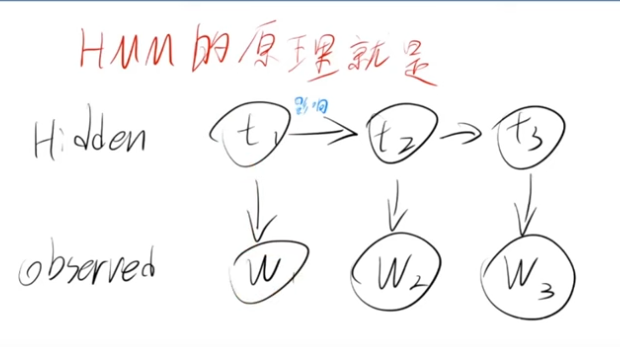 HMM的原理就是
影响
Hidden t1 t2 t3
observed W W2 W3